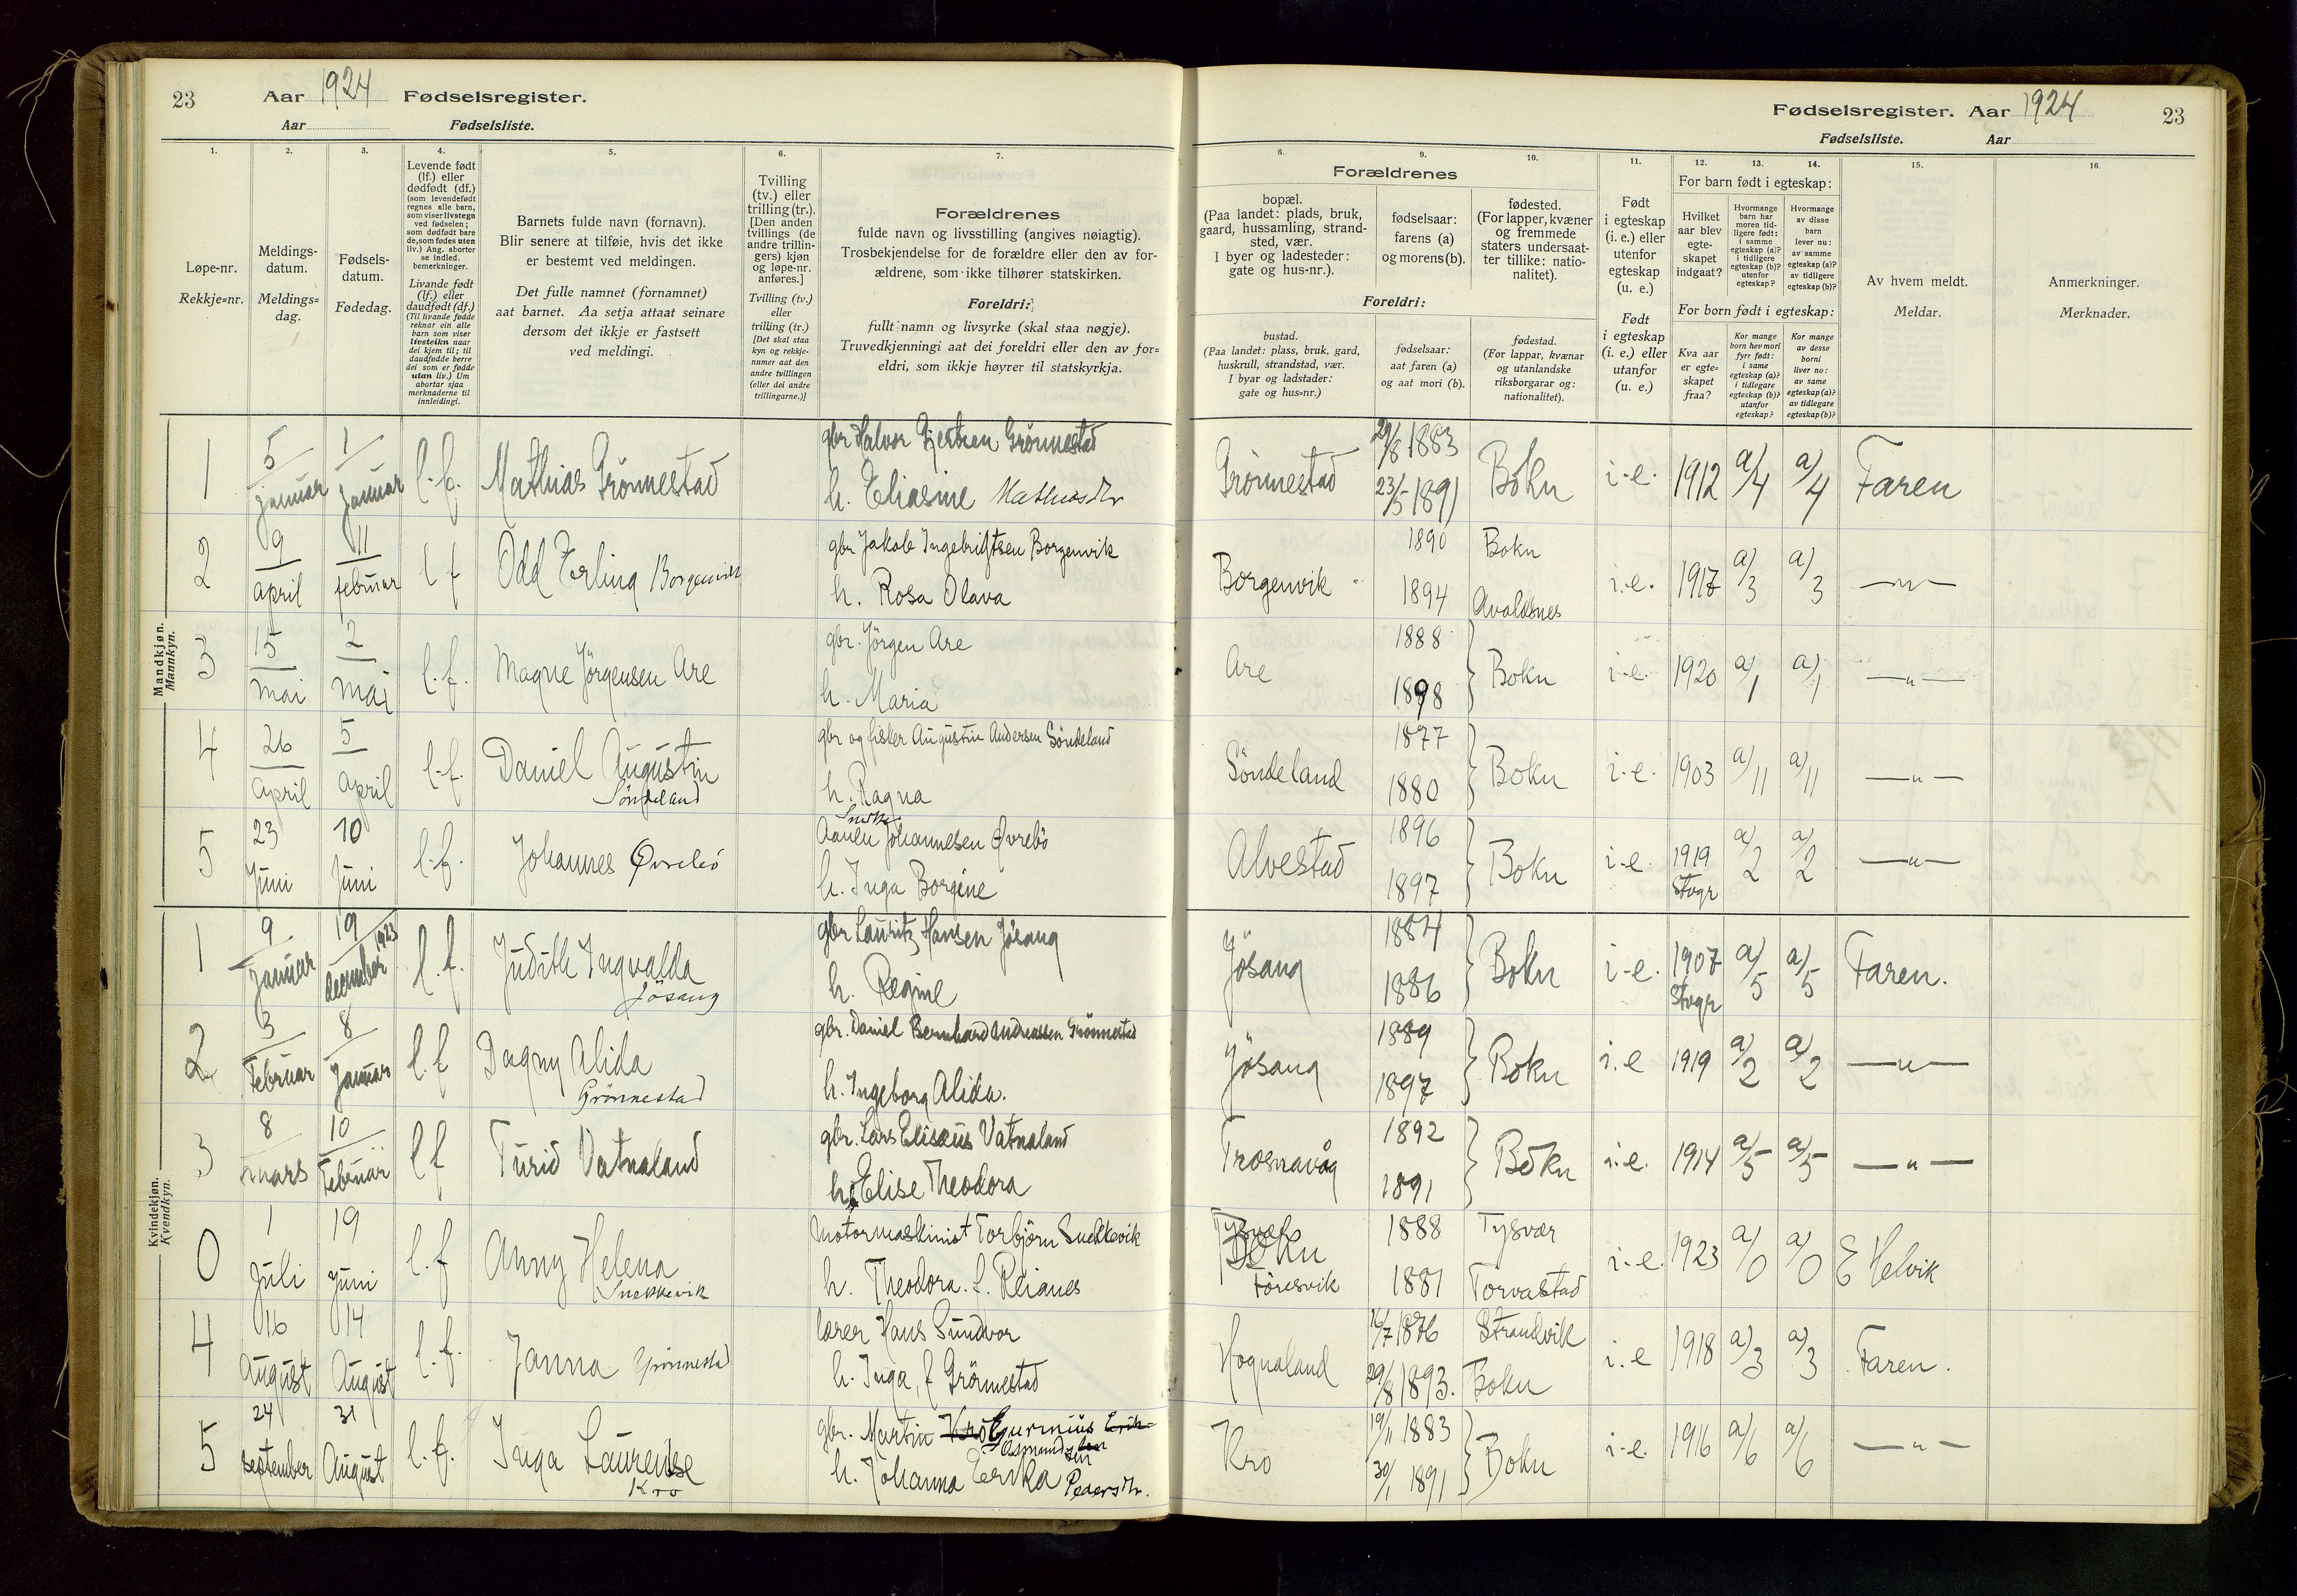 23 Aar 1924 Fødselsregister.
Aar Fødselsliste.
Fødselsregister. Aar 1924 23
Fødselsliste. Aar
1. 2. 3. 4. 5. 6. 7. 8. 9. 10. 11. 12. 13. 14. 15. 16.
Løpe-nr.
Rekkje-nr.
Meldings-
datum.
Meldings-
dag.
Fødsels-
datum.
Fødedag.
Levende født
(lf.) eller
dødfødt (df.)
(som levendefødt
regnes alle barn,
som viser livstegn
ved fødselen;
som dødfødt bare
de, som fødes uten
liv.) Ang. aborter
se indled.
bemerkninger.
Livande født
(lf.) eller
daudfødt (df.)
(Til livande fødde
reknar ein alle
barn som viser
livsteikn naar
dei kjem til; til
daudfødde berre
dei som er fødde
utan liv.) Um
abortar sjaa
merknaderne til
innleidingi.
Barnets fulde navn (fornavn).
Blir senere at tilføie, hvis det ikke
er bestemt ved meldingen.
Det fulle namnet (fornamnet)
aat barnet. Aa setja attaat seinare
dersom det ikkje er fastsett
ved meldingi.
Tvilling
(tv.) eller
trilling (tr.).
[Den anden
tvillings (de
andre trillin-
gers) kjøn
og løpe-nr.
anføres.]
Tvilling (tv.)
eller
trilling (tr.)
[Det skal staa
kyn og rekkje-
numer aat den
andre tvillingen
(eller dei andre
trillingarne.)]
Forældrenes
fulde navn og livsstilling (angives nøiagtig).
Trosbekjendelse for de forældre eller den av for-
ældrene, som ikke tilhører statskirken.
Foreldri:
fullt namn og livsyrke (skal staa nøgje).
Truvedkjenningi aat dei foreldri eller den av for-
eldri, som ikkje høyrer til statskyrkja.
Forældrenes
bopæl.
(Paa landet: plads, bruk,
gaard, hussamling, strand-
sted, vær.
I byer og ladesteder:
gate og hus-nr.).
fødselsaar:
farens (a)
og morens (b).
fødested.
(For lapper, kvæner
og fremmede
staters undersaat-
ter tillike: natio-
nalitet).
Foreldri:
bustad.
(Paa landet: plass, bruk, gard,
huskrull, strandstad, vær.
I byar og ladstader:
gate og hus-nr.)
fødselsaar:
aat faren (a)
og aat mori (b).
fødestad.
(For lappar, kvænar
og utanlandske
riksborgarar og:
nationalitet).
Født
i egteskap
(i. e.) eller
utenfor
egteskap
(u. e.)
Født
i egteskap
(i. e.) eller
utanfor
(u. e.)
For barn født i egteskap:
Hvilket
aar blev
egte-
skapet
indgaat?
Hvormange
barn har
moren tid-
ligere født:
i samme
egteskap (a)?
i tidligere
egteskap (b)?
utenfor
egteskap?
Hvormange
av disse
barn
lever nu:
av samme
egteskap (a)?
av tidligere
egteskap (b)?
For born født i egteskap:
Kva aar
er egte-
skapet
fraa?
Kor mange
born hev mori
fyrr født:
i same
egteskap (a)?
i tidlegare
egteskap (b)?
utanfor
egteskap?
Kor mange
av desse
borni
liver no:
av same
egteskap (a)?
av tidlegare
egteskap (b)?
Av hvem meldt.
Meldar.
Anmerkninger.
Merknader.
Mandkjøn.
Mannkyn.
1 5 januar 1 januar l.f. Mathias Grönnestad gbr Halvor Gjertsen Grönnestad
h. Eliasine Mathiasdtr
Grönnestad 1883 23/5 1891 Bokn i.e. 1912 a/4 a/4 Faren
2 9 april 11 februar l f Odd Erling Borgenvik gbr Jakob Ingebrigtsen Borgenvik
h. Rosa Olava
Borgenvik 1890 1894 Bokn Avaldsnes i.e. 1917 a/3 a/3 —"—
3 15 mai 2 mai l.f. Magne Jörgensen Are gbr. Jörgen Are
h. Maria
Are 1888 1898 Bokn i.e. 1920 a/1 a/1 —"—
4 26 april 5 april l.f. Daniel Augustin
Söndeland
gbr og fisker Augustin Andersen Söndeland
h. Ragna
Söndeland 1877 1880 Bokn i.e. 1903 a/11 a/11 —"—
5 23 Juni 10 Juni l.f. Johannes Øvrebö
Johannesen Øvrebö
h. Inga Borgine
Alvestad 1896 1897 Bokn i.e. 1919 Stvgr a/2 a/2 —"—
Kvindekjøn.
Kvendkyn.
1 9 januar 19 december 1923 l.f. Judith Ingvalda
Jösang
gbr Lauritz Hansen Jösang
h. Regine
Jösang 1884 1886 Bokn i.e. 1907 Stvgr a/5 a/5 Faren.
2 3 Februar 8 Januar l.f Dagny Alida
Grönnestad
gbr. Daniel Bernhard Andreassen Grönnestad
h. Ingeborg Alida.
Jösang 1889 1897 Bokn i.e 1919 a/2 a/2 —"—
3 8 mars 10 Februar l f Turid Vatnaland gbr. Lars Elisæus Vatnaland
h. Elise Theodora
Trosnavåg 1892 1891 Bokn i.e. 1914 a/5 a/5 —"—
0 1 Juli 19 Juni l.f Anny Helena
Snekkevik
Motormaskinist Torbjörn Snekkevik
h. Theodora f. Reianes
Bokn
Föresvik 1888 1881 Tysvær Torvastad i.e. 1923 a/0 a/0 E Helvik
4 16 August 14 August l.f. Janna Grönnestad lærer Hans Sundvor
h. Inga, f Grönnestad
Hognaland 16/7 1876 29/8 1893. Strandvik Bokn i.e 1918 a/3 a/3 Faren.
5 24 september 31 August l.f. Inga Laurense
Kro
gbr. Martin Kro Gurinius
Osmundsen
h. Johanna Erika Pedersdtr.
Kro 19/11 1883 30/1 1891 Bokn i.e. 1916 a/6 a/6 —"—